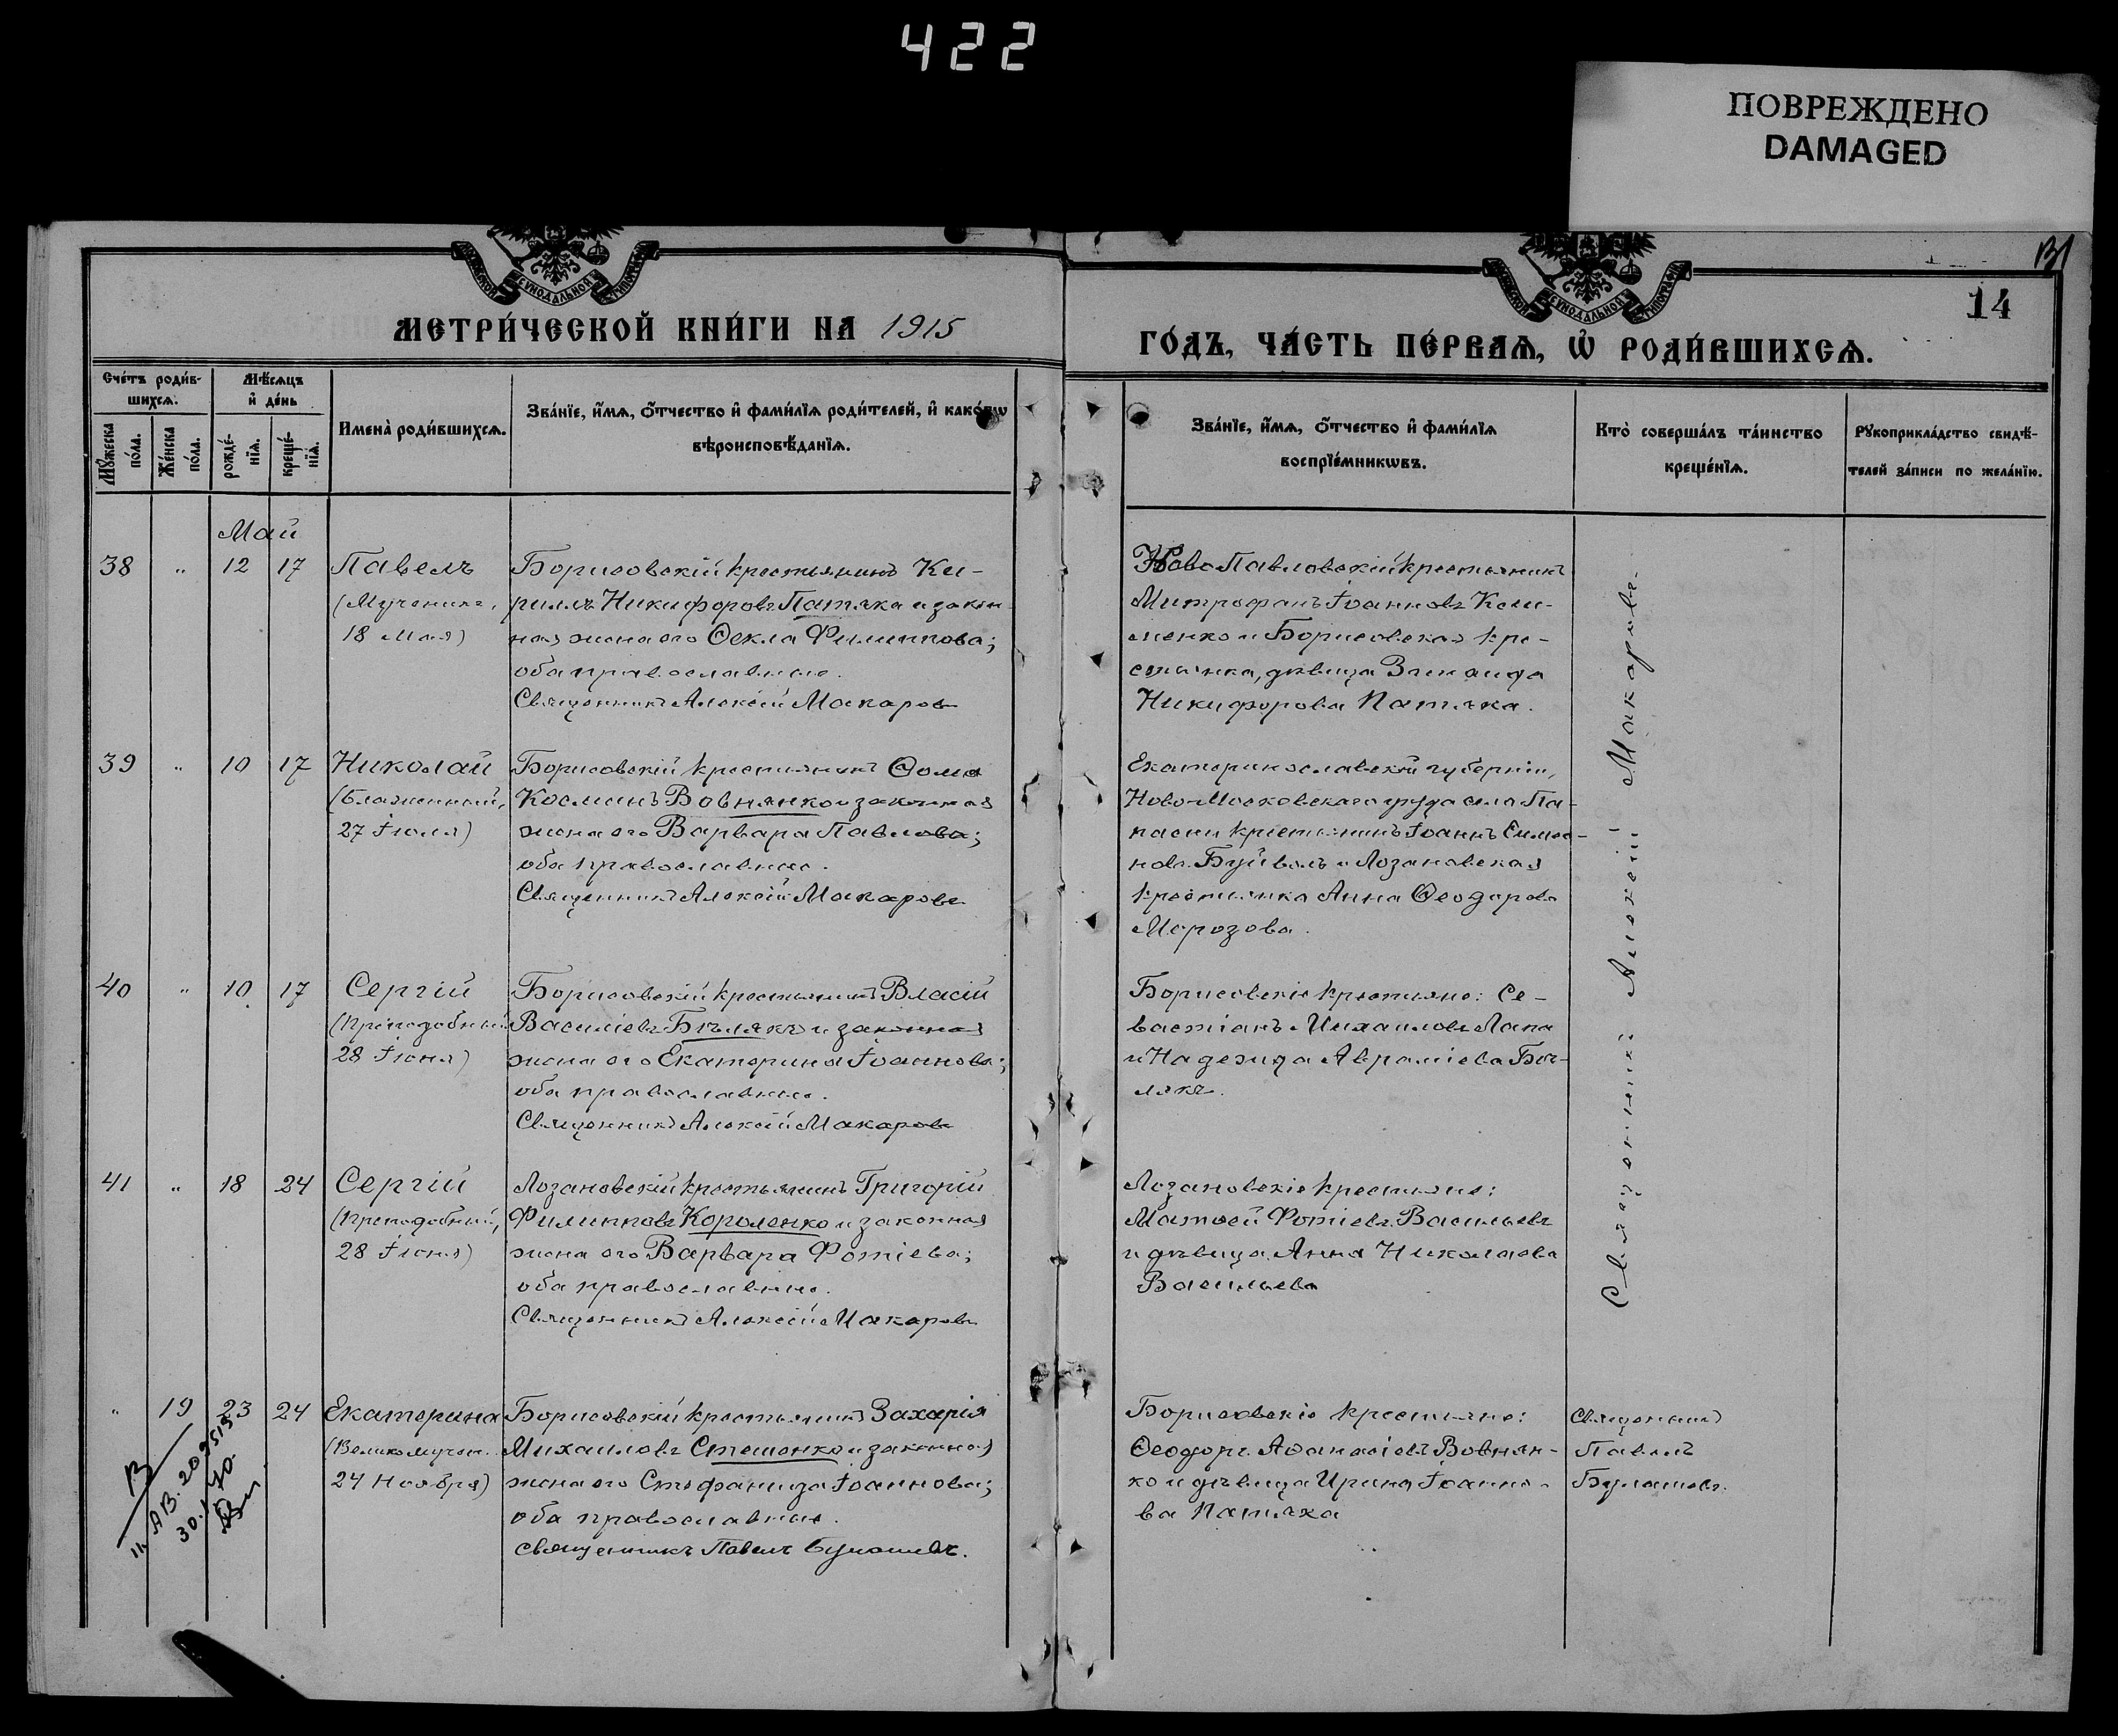 422
ПОВРЕЖДЕНО
DAMAGED
МЕТРИ́ЧЕСКОЙ КНИ́ГИ НА 1915
ГО́ДЪ, ЧА́СТЬ ПЕ́РВАѦ, Ѡ҆ РОДИ́ВШИХСѦ.
14
Сче́тъ роди́в-
шихсѧ.
Мѣ́сѧцъ
и҆ де́нь
Мꙋ́жеска
по́ла.
Же́нска
по́ла.
рожде́-
нїѧ.
креще́-
нїѧ.
Имена̀ роди́вшихсѧ.
Зва́нїе, и҆́мѧ, о҆́тчество и҆ фами́лїѧ роди́телей, и҆ како́гѡ
вѣроисповѣ́данїѧ.
Зва́нїе, и҆́мѧ, о҆́тчество и҆ фами́лїѧ
воспрїе́мникѡвъ.
Кто̀ соверша́лъ та́инство
креще́нїѧ.
Рꙋкоприкла́дство свидѣ́-
телей за́писи по жела́нїю.
Май
38 " 12 17 Павелъ
(Мученикъ,
18 мая)
Борисовскій крестьянинъ Ки-
риллъ Никифоровъ Патяка и закон-
ная жена его Ѳекла Филиппова;
оба православные.
Священникъ Алексій Макаровъ
Ново Павловскій крестьянинъ
Митрофанъ Іоанновъ
и Борисовская кре-
стьянка, дѣвица Зинаида
Никифорова Патяка.
39 " 10 17 Николай
(Блаженный,
27 Іюля)
Борисовскій крестьянинъ Ѳома
Косминъ Вовнянко и законная
жена его Варвара Павлова;
оба православные.
Священникъ Алексій Макаровъ
Екатеринославской губерніи,
Ново-Московскаго уѣзда села
крестьянинъ Іоаннъ Симео-
новъ Буйволъ и Лозановская
крестьянка Анна Ѳеодорова
Морозова.
40 " 10 17 Сергій
(Преподобный
28 Іюня)
Борисовскій крестьянинъ Власій
Василіевъ Бѣлякъ и законная
жена его Екатерина Іоаннова;
оба православные.
Священникъ Алексій Макаровъ
Борисовскіе крестьяне: Се-
вастіанъ Михаиловъ Лапа
и Надежда Авраміева Бѣ-
лякъ.
41 " 18 24 Сергій
(Преподобный,
28 Іюня)
Лозановскій крестьянинъ Григорій
Филипповъ Короленко и законная
жена его Варвара Фотіева;
оба православные.
Священникъ Алексій Макаровъ
Лозановскіе крестьяне:
Матѳей Фотіевъ Васильевъ
и дѣвица Анна Николаева
Васильева
Священникъ Алексій Макаровъ
" 19 23 24 Екатерина
(Великомучен.
24 Ноября)
Борисовскій крестьянинъ Захарія
Михаиловъ Стешенко и законная
жена его Стефанида Іоаннова;
оба православные.
Священникъ Павелъ Булашевъ.
Борисовскіе крестьяне:
Ѳеодоръ Аѳанасіевъ Вовнян-
ко и дѣвица Ирина Іоанно-
ва Патяка
Священникъ
Павелъ
Булашевъ.